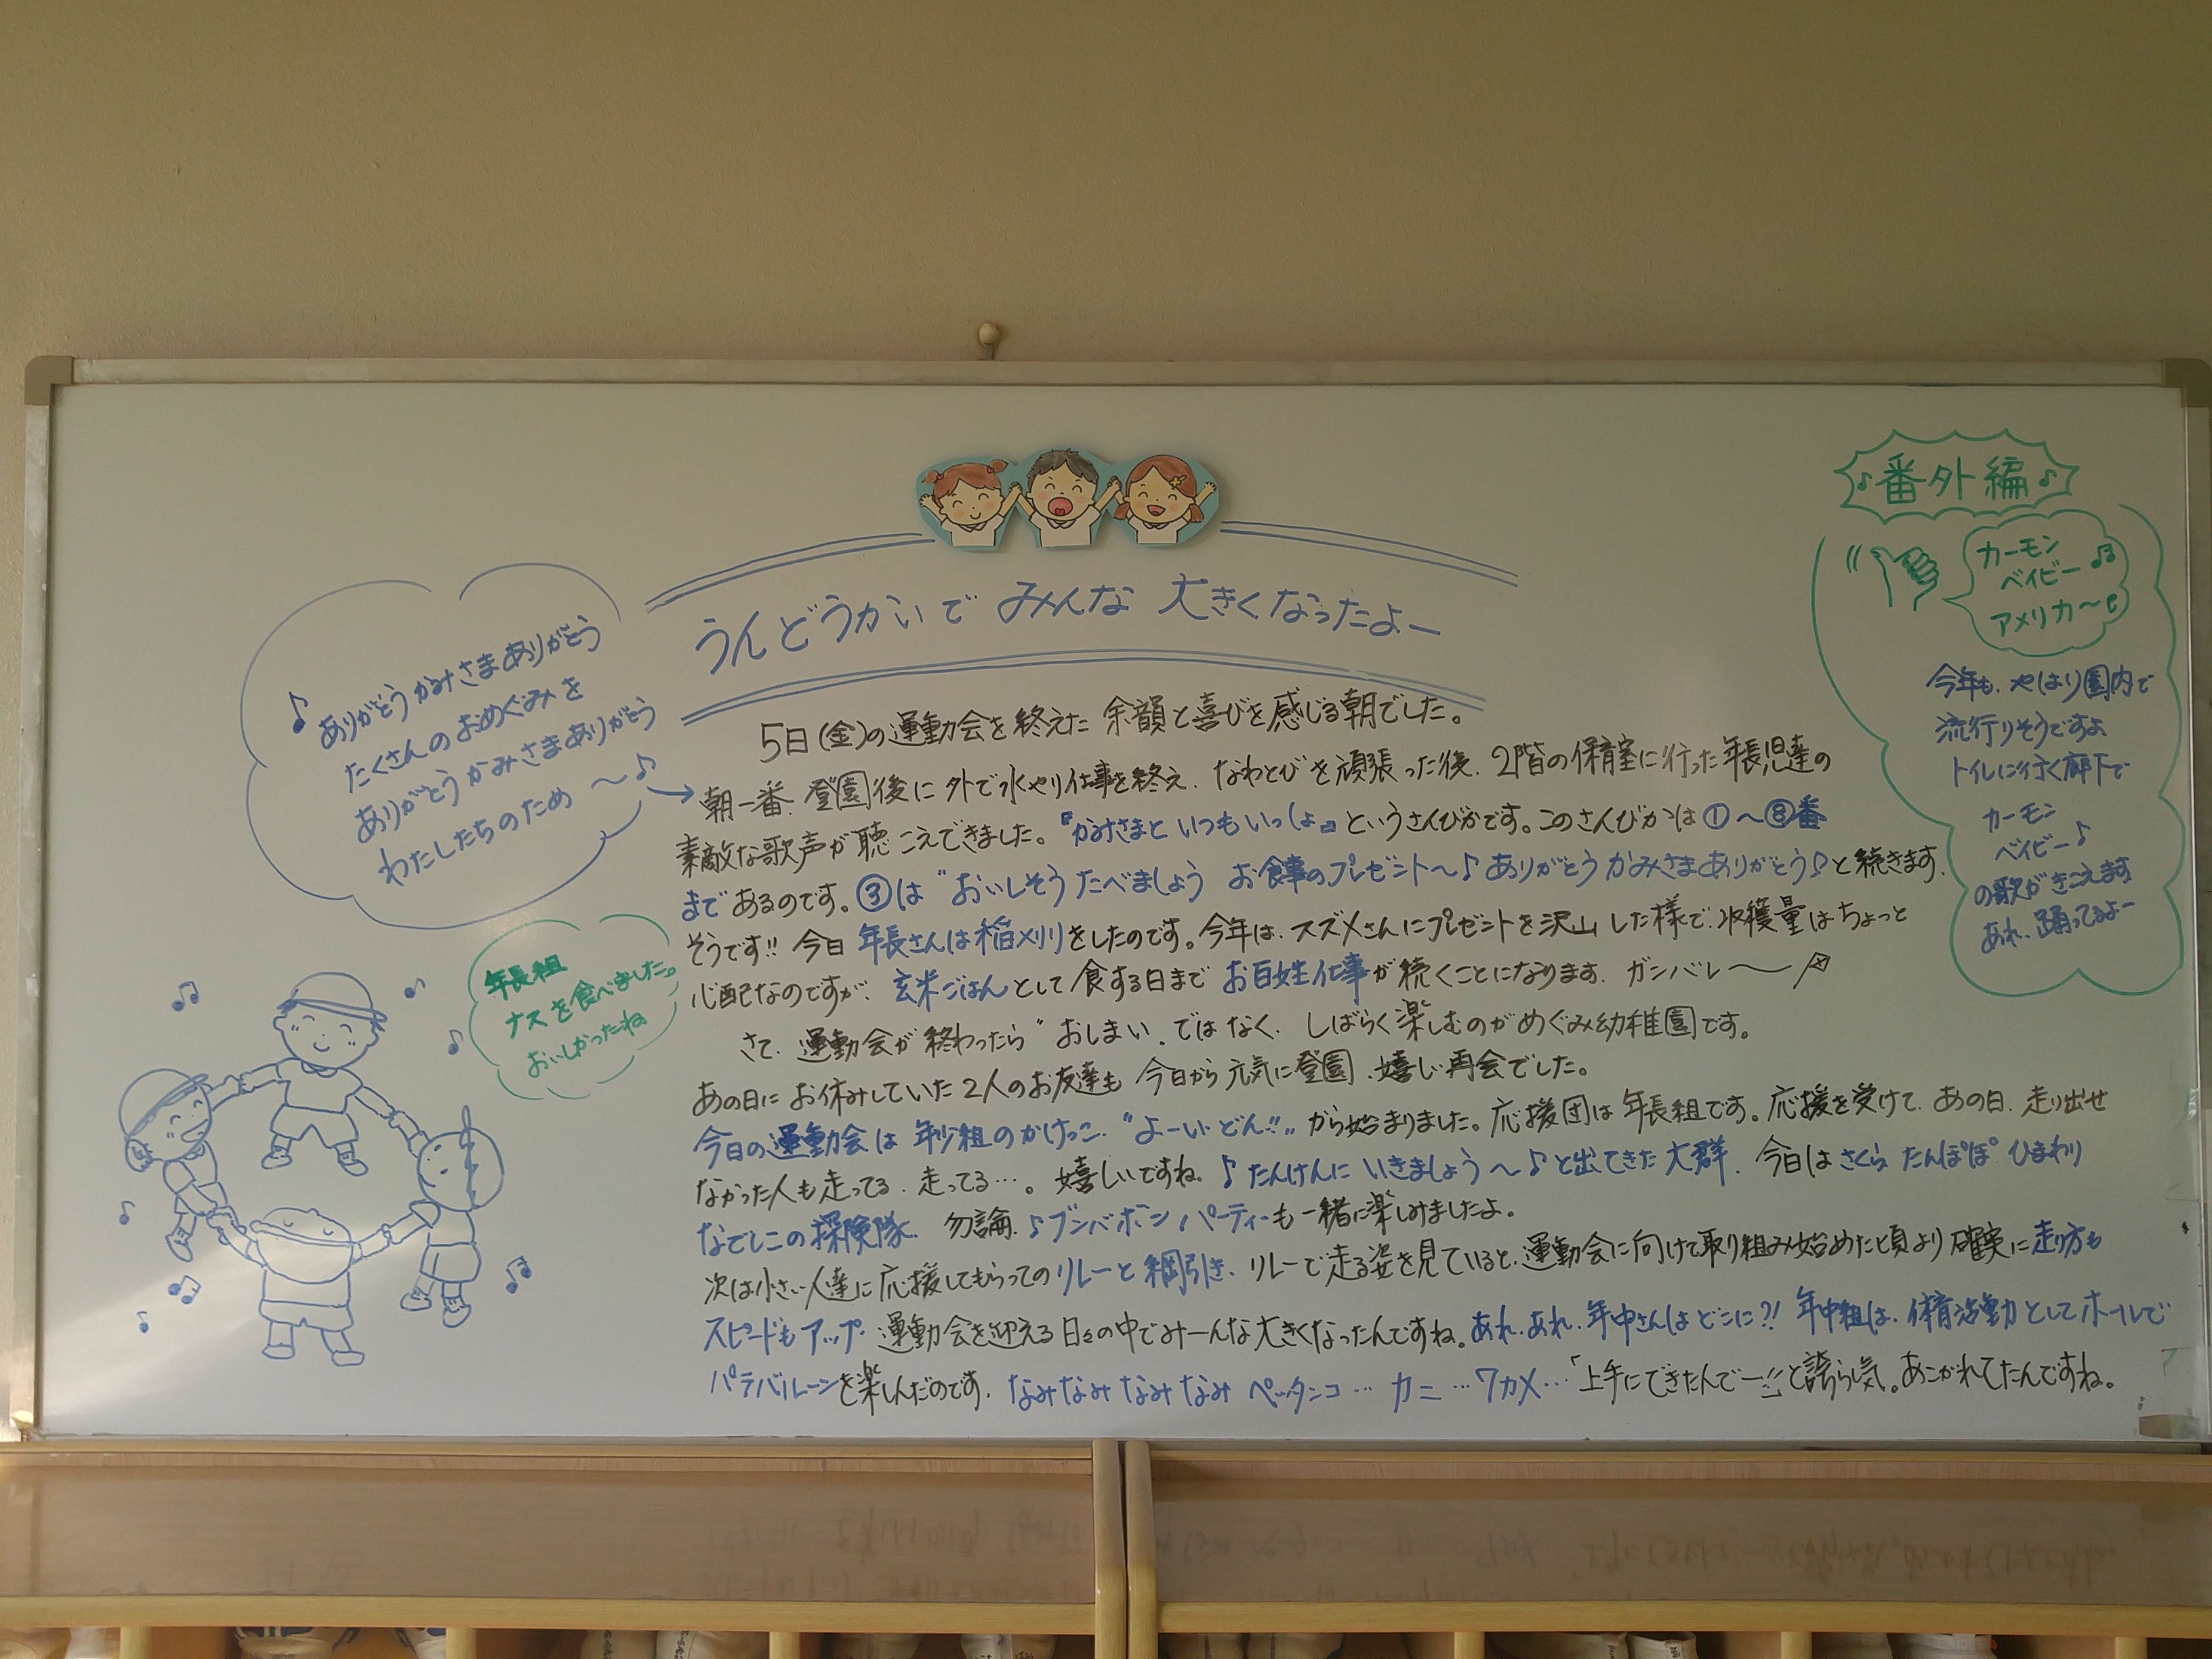 うんどうかいで みんな 大きくなったよー
♪ありがとう かみさまありがとう
たくさんの おめぐみを
ありがとう かみさまありがとう
わたしたちのため 〜♪
5日(金)の運動会を終えた 余韻と喜びを感じる朝でした。
朝一番、登園後に外で水やり仕事を終え、なわとびを頑張った後、2階の保育室に行った年長児達の
素敵な歌声が聴こえてきました。『かみさまと いつもいっしょ』というさんびかです。このさんびかは①〜⑧番
まであるのです。③は“おいしそう たべましょう お食事のプレゼント〜♪ありがとう かみさまありがとう♪と続きます。
そうです!! 今日 年長さんは稲刈りをしたのです。今年は、スズメさんにプレゼントを沢山した様で、収穫量はちょっと
心配なのですが、玄米ごはんとして食する日まで お百姓仕事が続くことになります。ガンバレ〜
さて、運動会が終わったら“おしまい„ではなく、しばらく楽しむのがめぐみ幼稚園です。
あの日に お休みしていた2人のお友達も 今日から元気に登園、嬉しい再会でした。
今日の運動会は 年少組のかけっこ、“よーい・どん!!„から始まりました。応援団は年長組です。応援を受けて、あの日、走り出せ
なかった人も走ってる、走ってる…。嬉しいですね。♪たんけんに いきましょう〜♪と出てきた大群、今日は さくら たんぽぽ ひまわり
なでしこの探険隊、勿論、♪ブンバボンパーティーも一緒に楽しみましたよ。
次は小さい人達に応援してもらってのリレーと綱引き、リレーで走る姿を見ていると、運動会に向けて取り組み始めた頃より確実に走り方も
スピードもアップ、運動会を迎える日々の中でみーんな大きくなったんですね。あれ、あれ、年中さんはどこに?! 年中組は、体育活動としてホールで
パラバルーンを楽しんだのです、なみなみなみなみ ペッタンコ… カニ …ワカメ…「上手にできたんでー」と誇らし気。あこがれてたんですね。
年長組
ナスを食べました。
おいしかったね
♪番外編♪
カーモン
ベイビー♪
アメリカ〜
今年も、やはり園内で
流行りそうですよ
トイレに行く廊下で
カーモン
ベイビー♪
の歌がきこえます
あれ、踊ってるよー